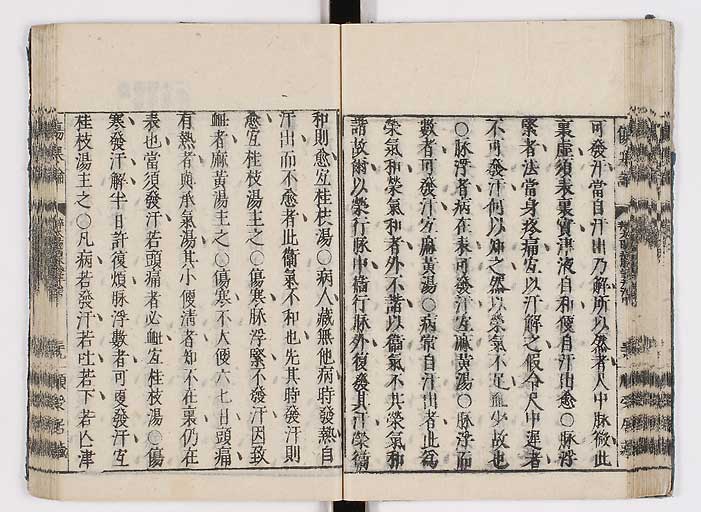 可發汗當自汗出乃解所以然者人中脉微此
裏虛須表裏實津液自和便自汗出愈〇脉浮
緊者法當身疼痛宜以汗解之假令尺中遲者
不可發汗何以知之然以榮氣不足血少故也
〇脉浮者病在表可發汗宜麻黃湯〇脉浮而
數者可發汗宜麻黃湯〇病常自汗出者此為
榮氣和榮氣和者外不諧以衞氣不共榮氣和
諧故爾以榮行脉中衞行脉外復發其汗榮衞
和則愈宜桂枝湯〇病人藏無他病時發熱自
汗出而不愈者此衞氣不和也先其時發汗則
愈宜桂枝湯主之〇傷寒脉浮緊不發汗因致
衄者麻黃湯主之〇傷寒不大便六七日頭痛
有熱者與承氣湯其小便淸者知不在裏仍在
表也當須發汗若頭痛者必衄宜桂枝湯〇傷
寒發汗解半日許復煩脉浮數者可更發汗宜
桂枝湯主之〇凡病若發汗若吐若下若亡津